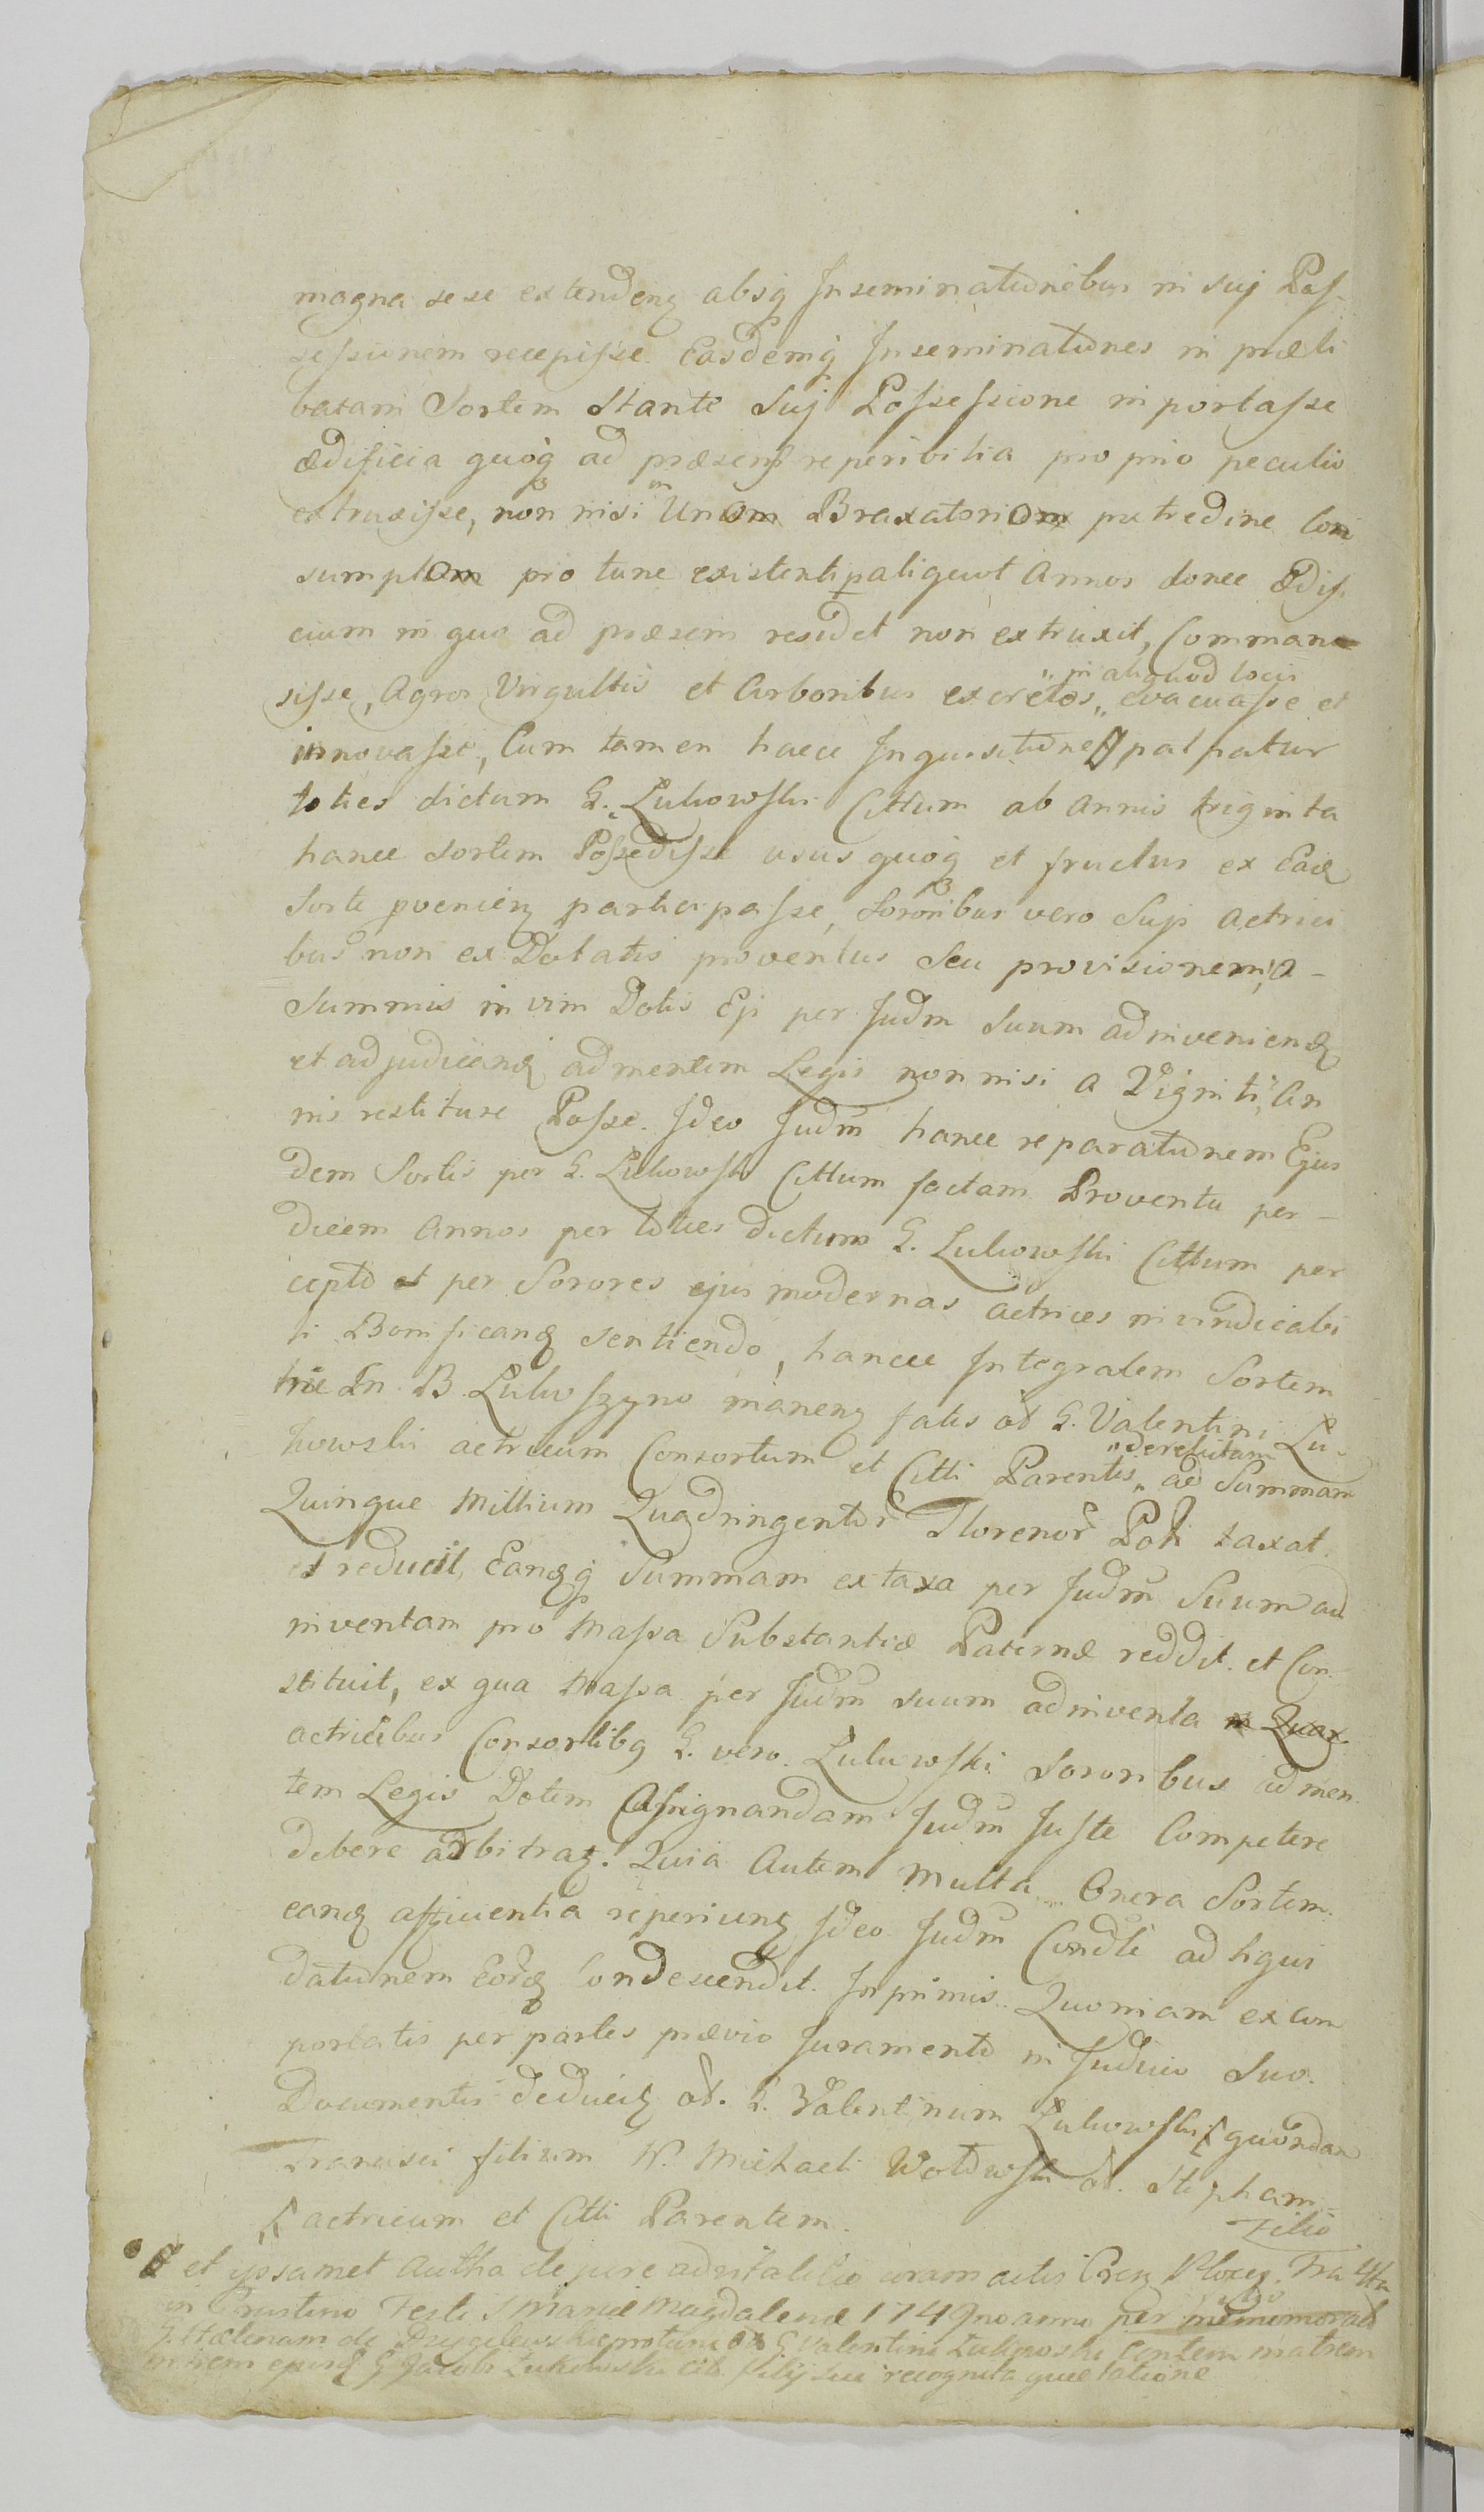 magna sese extendenꝫ absqꝫ Inseminationibus in Suj Pos-
sessionem recepisse. Easdemqꝫ Inseminationes in præli
batam Sortem Stante Suj Possessione importasse
ædificia quoqꝫ ad præsens reperibilia proprio peculio
extruxisse, non nisi in Unom Braxatoriom putredine Con
sumptom pro tunc existenti aliquot Annos donec ædifi
cium in quo ad præsens residet non extruxit, Comman
sisse, Agros Virgultis et Arboribus excretos „in aliquod locis„ evacuasse et
innovasse, Cum tamen haece Inquisitione palpatur
toties dictum G. Lukowski Cittum ab Annis triginta
hance Sortem Possedisse usus quoqꝫ et fructus ex Eadꝫ
Sorte pvenienꝫ participasse, Sororibus vero Suis Actrici
bus non ex Dotatis proventus Seu provisionem a
Summis in vim Dotis Eis per Judm Suum adinveniendꝫ
et adjudicandꝫ ad mentem Legis non nisi a Viginti An
nis restituere Posse. Ideo Judm hance reparationem Ejus
dem Sortis per G. Lukowski Cittum factam Proventu per
decem Annos per toties dictum G. Lukowski Cittum per
cepto et per Sorores ejus modernas Actrices invindicabi
li Bonificandꝫ sentiendo, hancce Integralem Sortem
hic In B. Lukoszyno manenꝫ fatis od G. Valentini Lu-
kowski actricum Consortum et Citti Parentis „derelictam„ ad Summam
Quinque Millium Quadringentor Florenor Poli taxat
et reducit, Eandꝫqꝫ Summam ex taxa per Judm Suum ad
inventam pro Massa Substantiæ Paternæ reddit et Con
stituit, ex qua Massa per Judm suum adinventa in Quar
actricibus Consortibꝫ G. vero Lukowski Sororibus ad men
tem Legis Dotem Assignandam Judm Juste Competere
debere arbitraꝫ. Quia Autem multa Onera Sortem
eandꝫ afficientia reperiunꝫ Ideo Judm Condle ad liqui
dationem Eordꝫ Condescendit. Inprimis Quoniam ex Com
portatis per partes prævio Juramento in Judicio Suo
Documentis deduciꝫ od. G. Valentinum Lukowski quondam
Francisci filium N. Michaeli Wotowski od. Stephani
Filio
actricum et Citti Parentem.
et ipsamet Autha de jure advitalitio coram actis
in Crastino Festi S Mariæ Magdalenæ 1749no anno per memorat
G. Valentini Lukowski Contem matrem
in rem ejusdꝫ G Jacobi Lukowski Citt. filij sui recognita quietatione